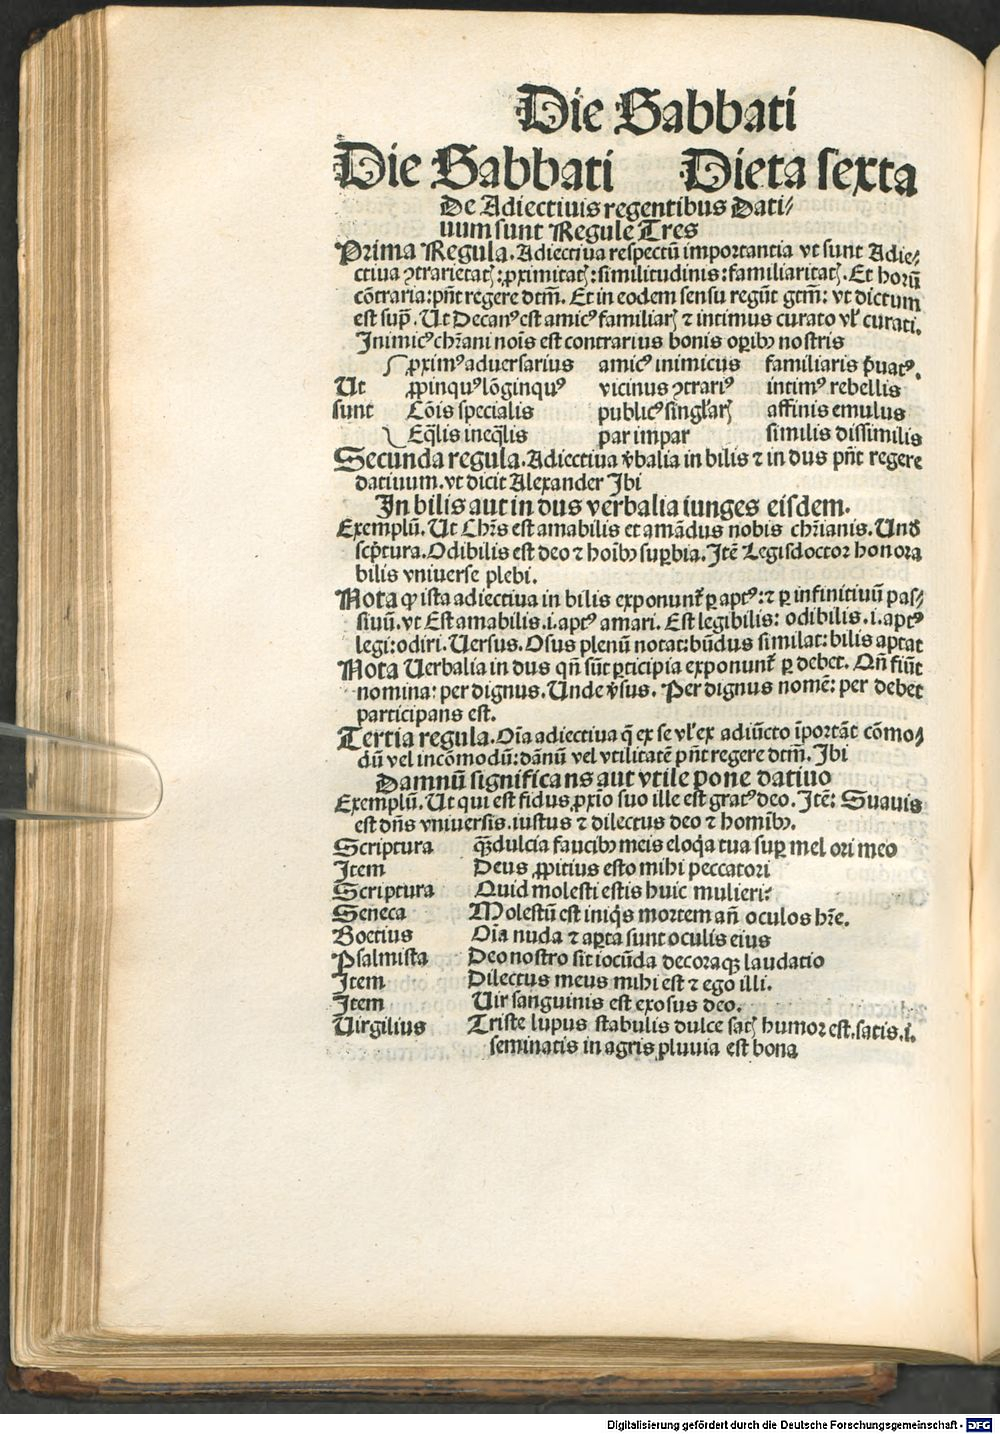 Die Sabbati
Die Sabbati Dieta sexta
De Adiectiuis regentibus Dati⸗
uum sunt Regule Tres
Prima Regula. Adiectiua respectū importantia vt sunt Adie⸗
ctiua ↄ̈trarietatꝭ: ꝓximitatꝭ: similitudinis: familiaritatꝭ. Et horū
cōtraria: pñt regere dtm̄. Et in eodem sensu regūt gtm̄: vt dictum
est sup̄. Ut Decanꝰ est amicꝰ familiarꝭ ⁊ intimus curato vl̓ curati.
Inimicꝰ chr̄ani nois̄ est contrarius bonis oꝑibꝫ nostris
ꝓximꝰ aduersarius amicꝰ inimicus familiaris p̄uatꝰ.
Ut ꝓpinquꝰ lōginquꝰ vicinus ↄ̈trariꝰ intimꝰ rebellis
sunt Cōis specialis publicꝰ singl̓arꝭ affinis emulus
Eq̄lis ineq̄lis par impar similis dissimilis
Secunda regula. Adiectiua v̄balia in bilis ⁊ in dus pñt regere
datiuum. vt dicit Alexander Ibi
In bilis aut in dus verbalia iunges eisdem.
Exemplū. Ut Chr̄s est amabilis et amādus nobis chr̄ianis. Un̄
scp̄tura. Odibilis est deo ⁊ hoībꝫ suꝑbia. Itē Legisdoctor honora
bilis vniuerse plebi.
Nota ꝙ ista adiectiua in bilis exponunt̄ ꝑ aptꝰ: ⁊ ꝑ infinitiuū pas⸗
siuū. vt Est amabilis .i. aptꝰ amari. Est legibilis: odibilis .i. aptꝰ
legi: odiri. Uersus. Osus plenū notat: būdus similat: bilis aptat
Nota Uerbalia in dus qñ sūt ꝑticipia exponunt̄ ꝑ debet. Qñ fiūt
nomina: per dignus. Unde v̄sus. Per dignus nomē: per debet
participans est.
Tertia regula. Oīa adiectiua q̄ ex se vl̓ ex adiūcto īportāt cōmo⸗
dū vel incōmodū: dānū vel vtilitatē pñt regere dtm̄. Ibi
Damnū significans aut vtile pone datiuo
Exemplū. Ut qui est fidus ꝓxīo suo ille est gratꝰ deo. Itē: Suauis
est dñs vniuersis. iustus ⁊ dilectus deo ⁊ homībꝫ.
Scriptura q̄ꝫ dulcia faucibꝫ meis eloq̄a tua suꝑ mel ori meo
Item Deus ꝓpitius esto mihi peccatori
Scriptura Quid molesti estis huic mulieri?
Seneca Molestū est iniq̄s mortem añ oculos hr̄e.
Boetius Oīa nuda ⁊ aꝑta sunt oculis eius
Psalmista Deo nostro sit iocūda decoraqꝫ laudatio
Item Dilectus meus mihi est ⁊ ego illi.
Item Uir sanguinis est exosus deo.
Uirgilius Triste lupus stabulis dulce satꝭ humor est. satis .i.
seminatis in agris pluuia est bona
Digitalisierung gefördert durch die Deutsche Forschungsgemeinschaft - DFG